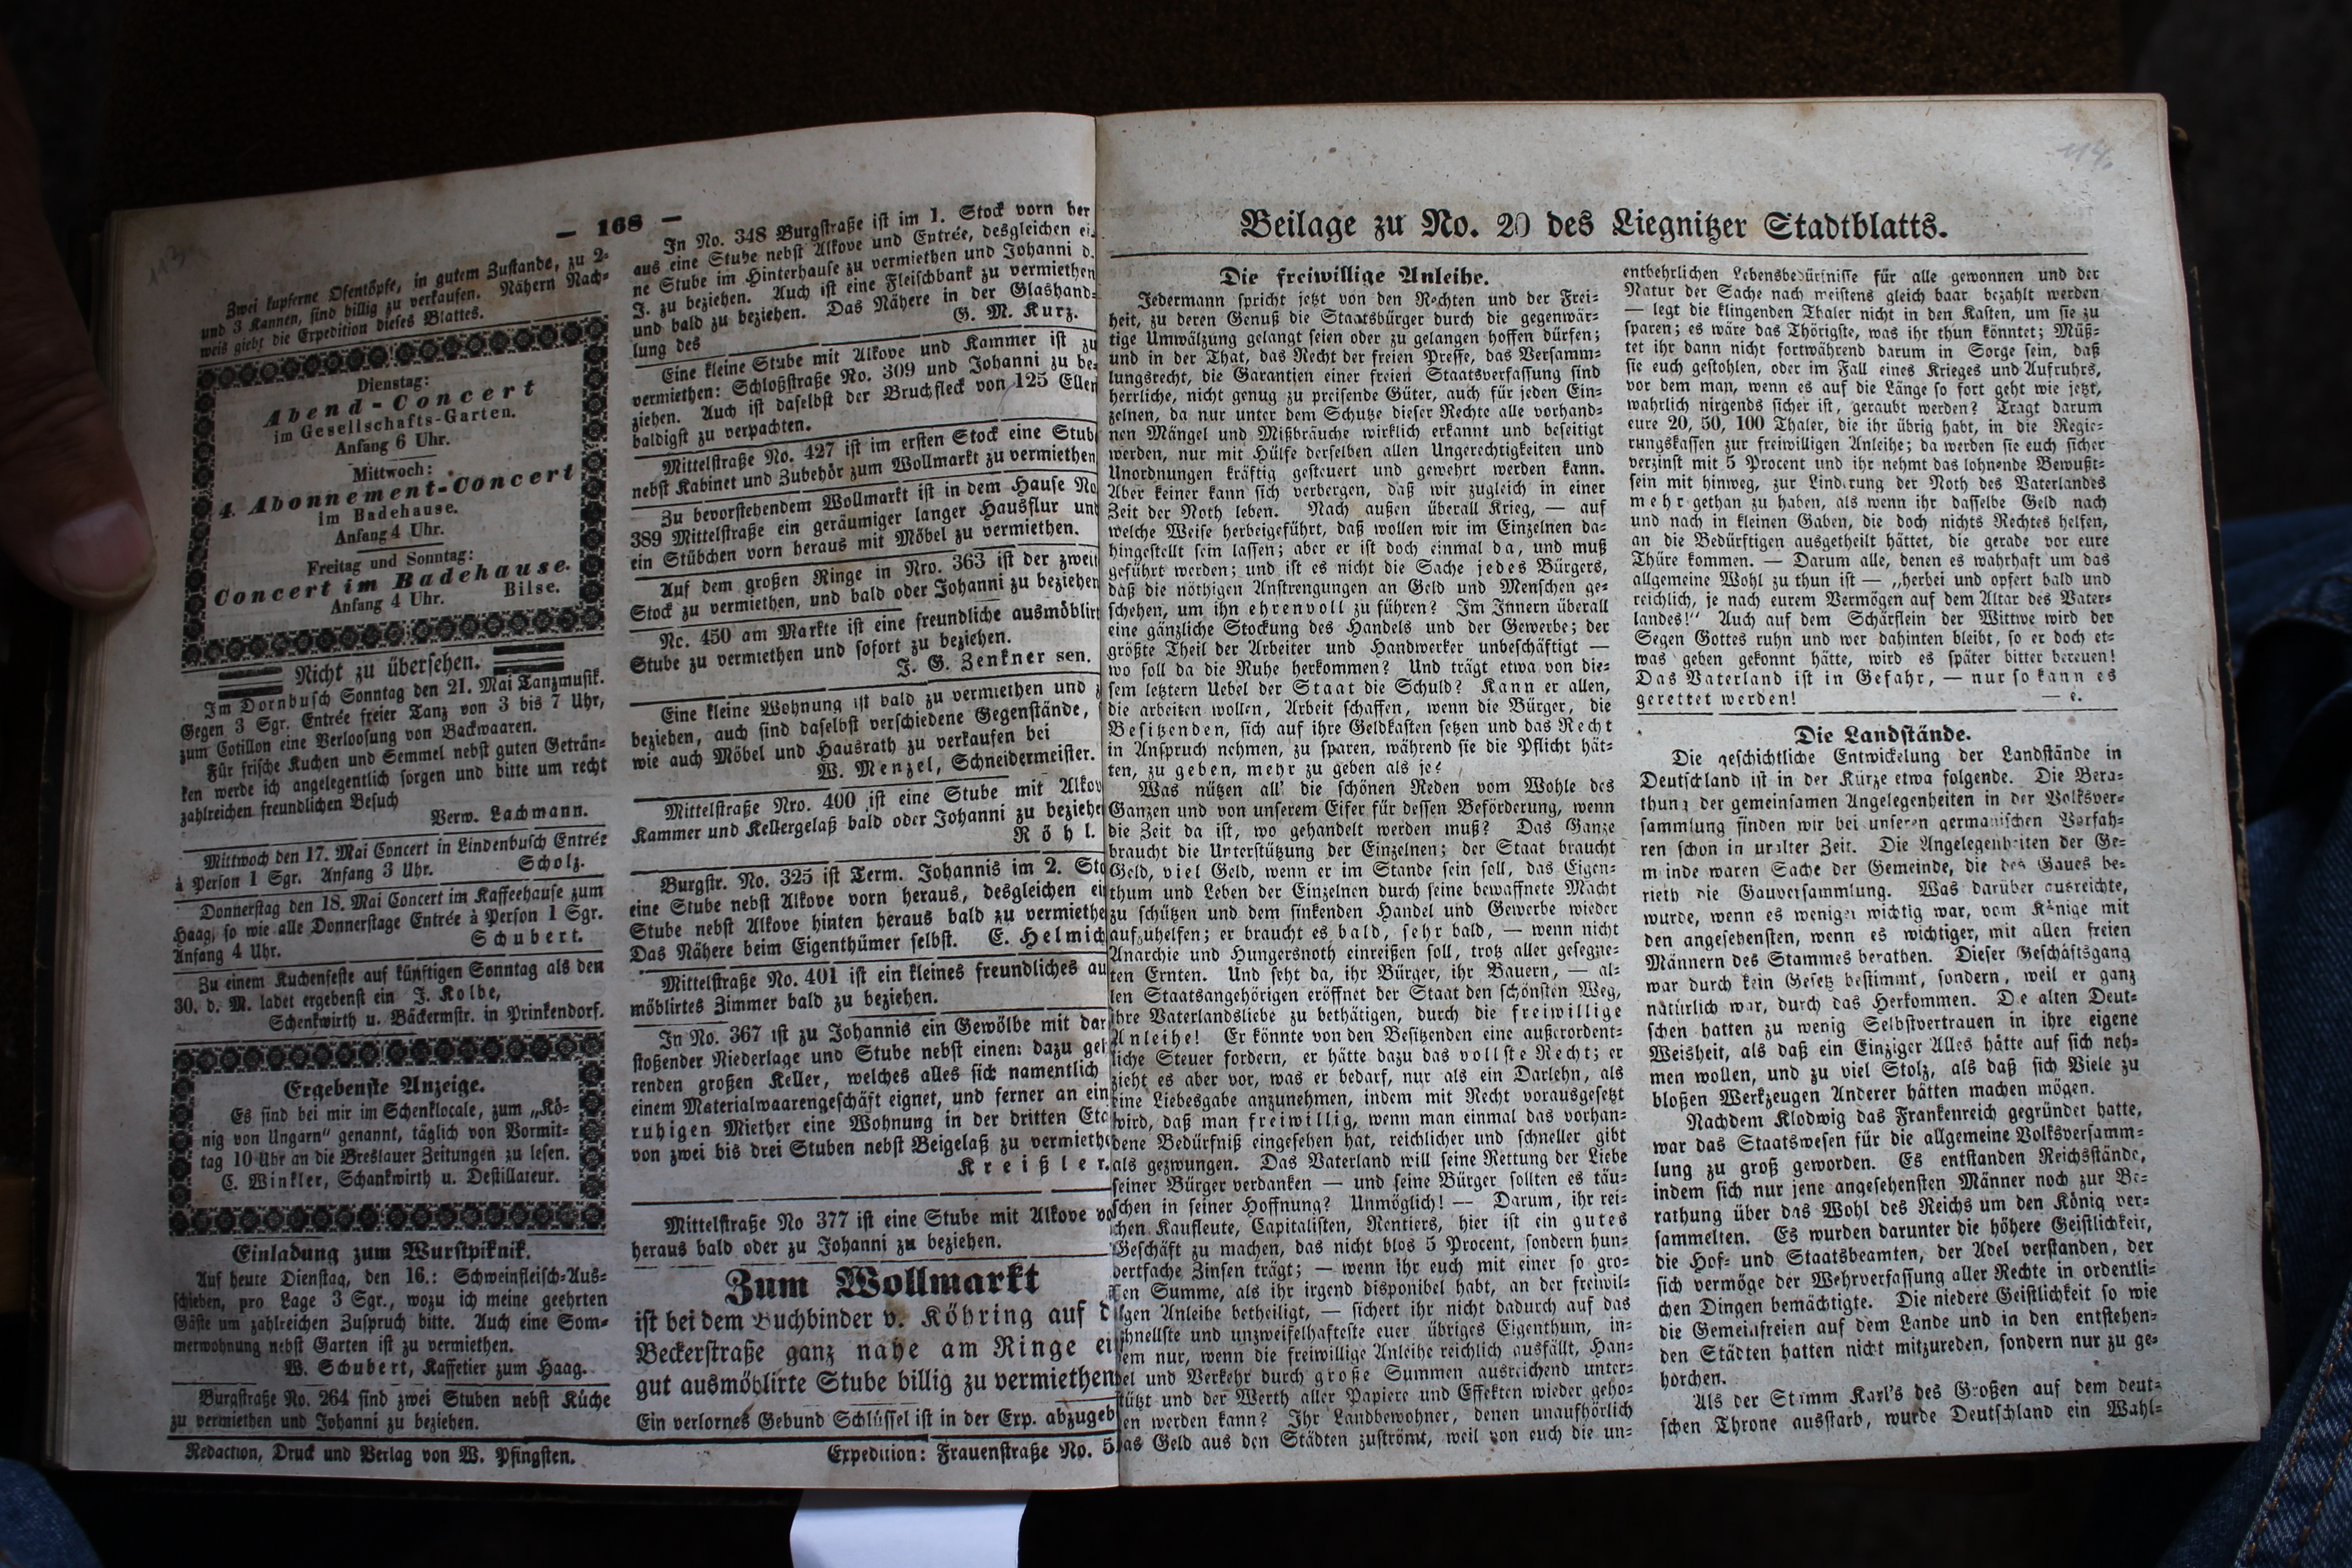 — 168 —
Zwei kupferne Ofentöpfe, in gutem Zustande, zu 2-
und 3 Kannen, sind billig zu verkaufen. Nähern Nach-
weis giebt die Expedition dieses Blattes.
Dienstag:
Abend-Concert
im Gesellschafts-Garten.
Anfang 6 Uhr.
Mittwoch:
4. Abonnement-Concert
im Badehause.
Anfang 4 Uhr.
Freitag und Sonntag:
Concert im Badehause.
Anfang 4 Uhr. Bilse.
Nicht zu übersehen.
Im Dornbusch Sonntag den 21. Mai Tanzmusik.
Gegen 3 Sgr. Entrée freier Tanz von 3 bis 7 Uhr,
zum Cotillon eine Verloosung von Backwaaren.
Für frische Kuchen und Semmel nebst guten Geträn-
ken werde ich angelegentlich sorgen und bitte um recht
zahlreichen freundlichen Besuch
Verw. Lachmann.
Mittwoch den 17. Mai Concert in Lindenbusch Entrée
à Person 1 Sgr. Anfang 3 Uhr. Scholz.
Donnerstag den 18. Mai Concert im Kaffeehause zum
Haag, so wie alle Donnerstage Entrée à Person 1 Sgr.
Anfang 4 Uhr. Schubert.
Zu einem Kuchenfeste auf künftigen Sonntag als den
30. d. M. ladet ergebenst ein J. Kolbe,
Schenkwirth u. Bäckermstr. in Prinkendorf.
Ergebenste Anzeige.
Es sind bei mir im Schenklocale, zum „Kö-
nig von Ungarn“ genannt, täglich von Vormit-
tag 10 Uhr an die Breslauer Zeitungen zu lesen.
C. Winkler, Schankwirth u. Destillateur.
Einladung zum Wurstpiknik.
Auf heute Dienstag, den 16.: Schweinfleisch-Aus-
schieben, pro Lage 3 Sgr., wozu ich meine geehrten
Gäste um zahlreichen Zuspruch bitte. Auch eine Som-
merwohnung nebst Garten ist zu vermiethen.
W. Schubert, Kaffetier zum Haag.
Burgstraße No. 264 sind zwei Stuben nebst Küche
zu vermiethen und Johanni zu beziehen.
In No. 348 Burgstraße ist im 1. Stock vorn her
aus eine Stube nebst Alkove und Entrée, desgleichen ei-
ne Stube im Hinterhause zu vermiethen und Johanni d.
J. zu beziehen. Auch ist eine Fleischbank zu vermiethen
und bald zu beziehen. Das Nähere in der Glashand-
lung des G. M. Kurz.
Eine kleine Stube mit Alkove und Kammer ist zu
vermiethen: Schloßstraße No. 309 und Johanni zu be-
ziehen. Auch ist daselbst der Bruchfleck von 125 Ellen
baldigst zu verpachten.
Mittelstraße No. 427 ist im ersten Stock eine Stube
nebst Kabinet und Zubehör zum Wollmarkt zu vermiethen
Zu bevorstehendem Wollmarkt ist in dem Hause No
389 Mittelstraße ein geräumiger langer Hausflur und
ein Stübchen vorn heraus mit Möbel zu vermiethen.
Auf dem großen Ringe in Nro. 363 ist der zweite
Stock zu vermiethen, und bald oder Johanni zu beziehen
No. 450 am Markte ist eine freundliche ausmöblirt
Stube zu vermiethen und sofort zu beziehen.
J. G. Zenkner sen.
Eine kleine Wohnung ist bald zu vermiethen und z
beziehen, auch sind daselbst verschiedene Gegenstände,
wie auch Möbel und Hausrath zu verkaufen bei
W. Menzel, Schneidermeister.
Mittelstraße Nro. 400 ist eine Stube mit Alkov
Kammer und Kellergelaß bald oder Johanni zu beziehe
Röhl.
Burgstr. No. 325 ist Term. Johannis im 2. Sto
eine Stube nebst Alkove vorn heraus, desgleichen ei
Stube nebst Alkove hinten heraus bald zu vermiethe
Das Nähere beim Eigenthümer selbst. E. Helmich
Mittelstraße No. 401 ist ein kleines freundliches au
möblirtes Zimmer bald zu beziehen.
In No. 367 ist zu Johannis ein Gewölbe mit dar
stoßender Niederlage und Stube nebst einem dazu geh
renden großen Keller, welches alles sich namentlich
einem Materialwaarengeschäft eignet, und ferner an ein
ruhigen Miether eine Wohnung in der dritten Eta
von zwei bis drei Stuben nebst Beigelaß zu vermieth
Kreißler.
Mittelstraße No 377 ist eine Stube mit Alkove vo
heraus bald oder zu Johanni zu beziehen.
Zum Wollmarkt
ist bei dem Buchbinder v. Köhring auf d
Beckerstraße ganz nahe am Ringe ei
gut ausmöblirte Stube billig zu vermiethen
Ein verlornes Gebund Schlüssel ist in der Exp. abzugeb
Redaction, Druck und Verlag von W. Pfingsten. Expedition: Frauenstraße No. 5
Beilage zu No. 20 des Liegnitzer Stadtblatts.
Die freiwillige Anleihe.
Jedermann spricht jetzt von den Rechten und der Frei-
heit, zu deren Genuß die Staatsbürger durch die gegenwär-
tige Umwälzung gelangt seien oder zu gelangen hoffen dürfen;
und in der That, das Recht der freien Presse, das Versamm-
lungsrecht, die Garantien einer freien Staatsverfassung sind
herrliche, nicht genug zu preisende Güter, auch für jeden Ein-
zelnen, da nur unter dem Schutze dieser Rechte alle vorhand-
nen Mängel und Mißbräuche wirklich erkannt und beseitigt
werden, nur mit Hülfe derselben allen Ungerechtigkeiten und
Unordnungen kräftig gesteuert und gewehrt werden kann.
Aber keiner kann sich verbergen, daß wir zugleich in einer
Zeit der Noth leben. Nach außen überall Krieg, — auf
welche Weise herbeigeführt, daß wollen wir im Einzelnen da-
hingestellt sein lassen; aber er ist doch einmal da, und muß
geführt werden; und ist es nicht die Sache jedes Bürgers,
daß die nöthigen Anstrengungen an Geld und Menschen ge-
schehen, um ihn ehrenvoll zu führen? Im Innern überall
eine gänzliche Stockung des Handels und der Gewerbe; der
größte Theil der Arbeiter und Handwerker unbeschäftigt —
wo soll da die Ruhe herkommen? Und trägt etwa von die-
sem letztern Uebel der Staat die Schuld? Kann er allen,
die arbeiten wollen, Arbeit schaffen, wenn die Bürger, die
Besitzenden, sich auf ihre Geldkasten setzen und das Recht
in Anspruch nehmen, zu sparen, während sie die Pflicht hät-
ten, zu geben, mehr zu geben als je?
Was nützen all' die schönen Reden vom Wohle des
Ganzen und von unserem Eifer für dessen Beförderung, wenn
die Zeit da ist, wo gehandelt werden muß? Das Ganze
braucht die Unterstützung der Einzelnen; der Staat braucht
Geld, viel Geld, wenn er im Stande sein soll, das Eigen-
thum und Leben der Einzelnen durch seine bewaffnete Macht
zu schützen und dem sinkenden Handel und Gewerbe wieder
aufzuhelfen; er braucht es bald, sehr bald, — wenn nicht
Anarchie und Hungersnoth einreißen soll, trotz aller gesegne-
ten Ernten. Und seht da, ihr Bürger, ihr Bauern, — al-
len Staatsangehörigen eröffnet der Staat den schönsten Weg,
ihre Vaterlandsliebe zu bethätigen, durch die freiwillige
Anleihe! Er könnte von den Besitzenden eine außerordent-
liche Steuer fordern, er hätte dazu das vollste Recht; er
zieht es aber vor, was er bedarf, nur als ein Darlehn, als
eine Liebesgabe anzunehmen, indem mit Recht vorausgesetzt
wird, daß man freiwillig, wenn man einmal das vorhan-
dene Bedürfniß eingesehen hat, reichlicher und schneller gibt
als gezwungen. Das Vaterland will seine Rettung der Liebe
seiner Bürger verdanken — und seine Bürger sollten es täu-
schen in seiner Hoffnung? Unmöglich! — Darum, ihr rei-
chen Kaufleute, Capitalisten, Rentiers, hier ist ein gutes
Geschäft zu machen, das nicht blos 5 Procent, sondern hun-
dertfache Zinsen trägt; — wenn ihr euch mit einer so gro-
ßen Summe, als ihr irgend disponibel habt, an der freiwil-
ligen Anleihe betheiligt, — sichert ihr nicht dadurch auf das
schnellste und unzweifelhafteste euer übriges Eigenthum, in-
dem nur, wenn die freiwillige Anleihe reichlich ausfällt, Han-
del und Verkehr durch große Summen ausreichend unter-
stützt und der Werth aller Papiere und Effekten wieder geho-
ben werden kann? Ihr Landbewohner, denen unaufhörlich
das Geld aus den Städten zuströmt, weil von euch die un-
entbehrlichen Lebensbedürfnisse für alle gewonnen und der
Natur der Sache nach meistens gleich baar bezahlt werden
— legt die klingenden Thaler nicht in den Kasten, um sie zu
sparen; es wäre das Thörigste, was ihr thun könntet; Müß-
tet ihr dann nicht fortwährend darum in Sorge sein, daß
sie euch gestohlen, oder im Fall eines Krieges und Aufruhrs,
vor dem man, wenn es auf die Länge so fort geht wie jetzt,
wahrlich nirgends sicher ist, geraubt werden? Tragt darum
eure 20, 50, 100 Thaler, die ihr übrig habt, in die Regie-
rungskassen zur freiwilligen Anleihe; da werden sie euch sicher
verzinst mit 5 Procent und ihr nehmt das lohnende Bewußt-
sein mit hinweg, zur Linderung der Noth des Vaterlandes
mehr gethan zu haben, als wenn ihr dasselbe Geld nach
und nach in kleinen Gaben, die doch nichts Rechtes helfen,
an die Bedürftigen ausgetheilt hättet, die gerade vor eure
Thüre kommen. — Darum alle, denen es wahrhaft um das
allgemeine Wohl zu thun ist — „herbei und opfert bald und
reichlich, je nach eurem Vermögen auf dem Altar des Vater-
landes!“ Auch auf dem Schärflein der Wittwe wird der
Segen Gottes ruhn und wer dahinten bleibt, so er doch et-
was geben gekonnt hätte, wird es später bitter bereuen!
Das Vaterland ist in Gefahr, — nur so kann es
gerettet werden! — e.
Die Landstände.
Die geschichtliche Entwickelung der Landstände in
Deutschland ist in der Kürze etwa folgende. Die Bera-
thung der gemeinsamen Angelegenheiten in der Volksver-
sammlung finden wir bei unseren germanischen Vorfah-
ren schon in uralter Zeit. Die Angelegenheiten der Ge-
meinde waren Sache der Gemeinde, die des Gaues be-
rieth die Gauversammlung. Was darüber ausreichte,
wurde, wenn es weniger wichtig war, vom Könige mit
den angesehensten, wenn es wichtiger, mit allen freien
Männern des Stammes berathen. Dieser Geschäftsgang
war durch kein Gesetz bestimmt, sondern, weil er ganz
natürlich war, durch das Herkommen. Die alten Deut-
schen hatten zu wenig Selbstvertrauen in ihre eigene
Weisheit, als daß ein Einziger Alles hätte auf sich neh-
men wollen, und zu viel Stolz, als daß sich Viele zu
bloßen Werkzeugen Anderer hätten machen mögen.
Nachdem Klodwig das Frankenreich gegründet hatte,
war das Staatswesen für die allgemeine Volksversamm-
lung zu groß geworden. Es entstanden Reichsstände,
indem sich nur jene angesehensten Männer noch zur Be-
rathung über das Wohl des Reichs um den König ver-
sammelten. Es wurden darunter die höhere Geistlichkeit,
die Hof- und Staatsbeamten, der Adel verstanden, der
sich vermöge der Wehrverfassung aller Rechte in ordentli-
chen Dingen bemächtigte. Die niedere Geistlichkeit so wie
die Gemeinfreien auf dem Lande und in den entstehen-
den Städten hatten nicht mitzureden, sondern nur zu ge-
horchen.
Als der Stamm Karl's des Großen auf dem deut-
schen Throne ausstarb, wurde Deutschland ein Wahl-